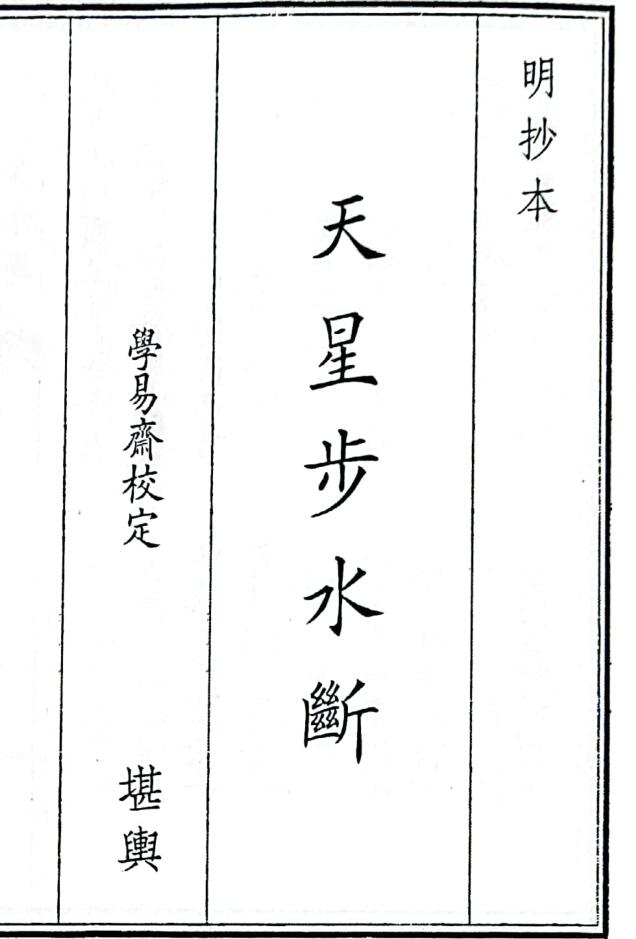 明抄本
天星步水斷
學易齋校定
堪輿